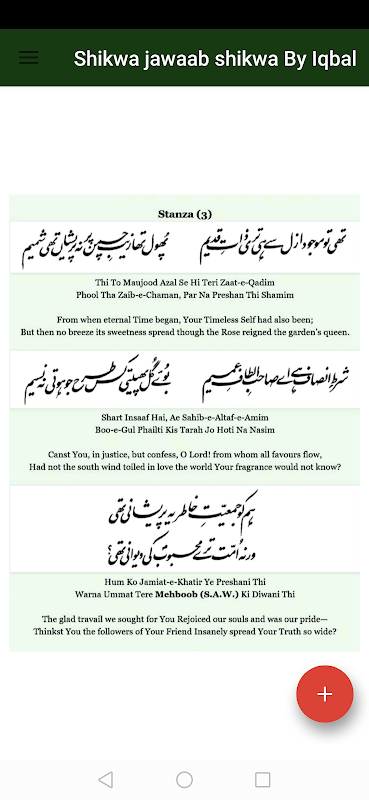 Shikwa jawaab shikwa By Iqbal
Stanza (3)
تھی تو موجود ازل سے ہی تری ذاتِ قدیم
پھول تھا زیبِ چمن پر نہ پریشاں تھی شمیم
Thi To Maujood Azal Se Hi Teri Zaat-e-Qadim
Phool Tha Zaib-e-Chaman, Par Na Preshan Thi Shamim
From when eternal Time began, Your Timeless Self had also been;
But then no breeze its sweetness spread though the Rose reigned the garden's queen.
شرط انصاف ہے اے صاحبِ الطافِ عمیم
بوئے گُل پھیلتی کس طرح جو ہوتی نہ نسیم
Shart Insaaf Hai, Ae Sahib-e-Altaf-e-Amim
Boo-e-Gul Phailti Kis Tarah Jo Hoti Na Nasim
Canst You, in justice, but confess, O Lord! from whom all favours flow,
Had not the south wind toiled in love the world Your fragrance would not know?
ہم کو جمعیّتِ خاطر یہ پریشانی تھی
ورنہ اُمّت ترے محبوبؐ کی دیوانی تھی؟
Hum Ko Jamiat-e-Khatir Ye Preshani Thi
Warna Ummat Tere Mehboob (S.A.W.) Ki Diwani Thi
The glad travail we sought for You Rejoiced our souls and was our pride—
Thinkst You the followers of Your Friend Insanely spread Your Truth so wide?